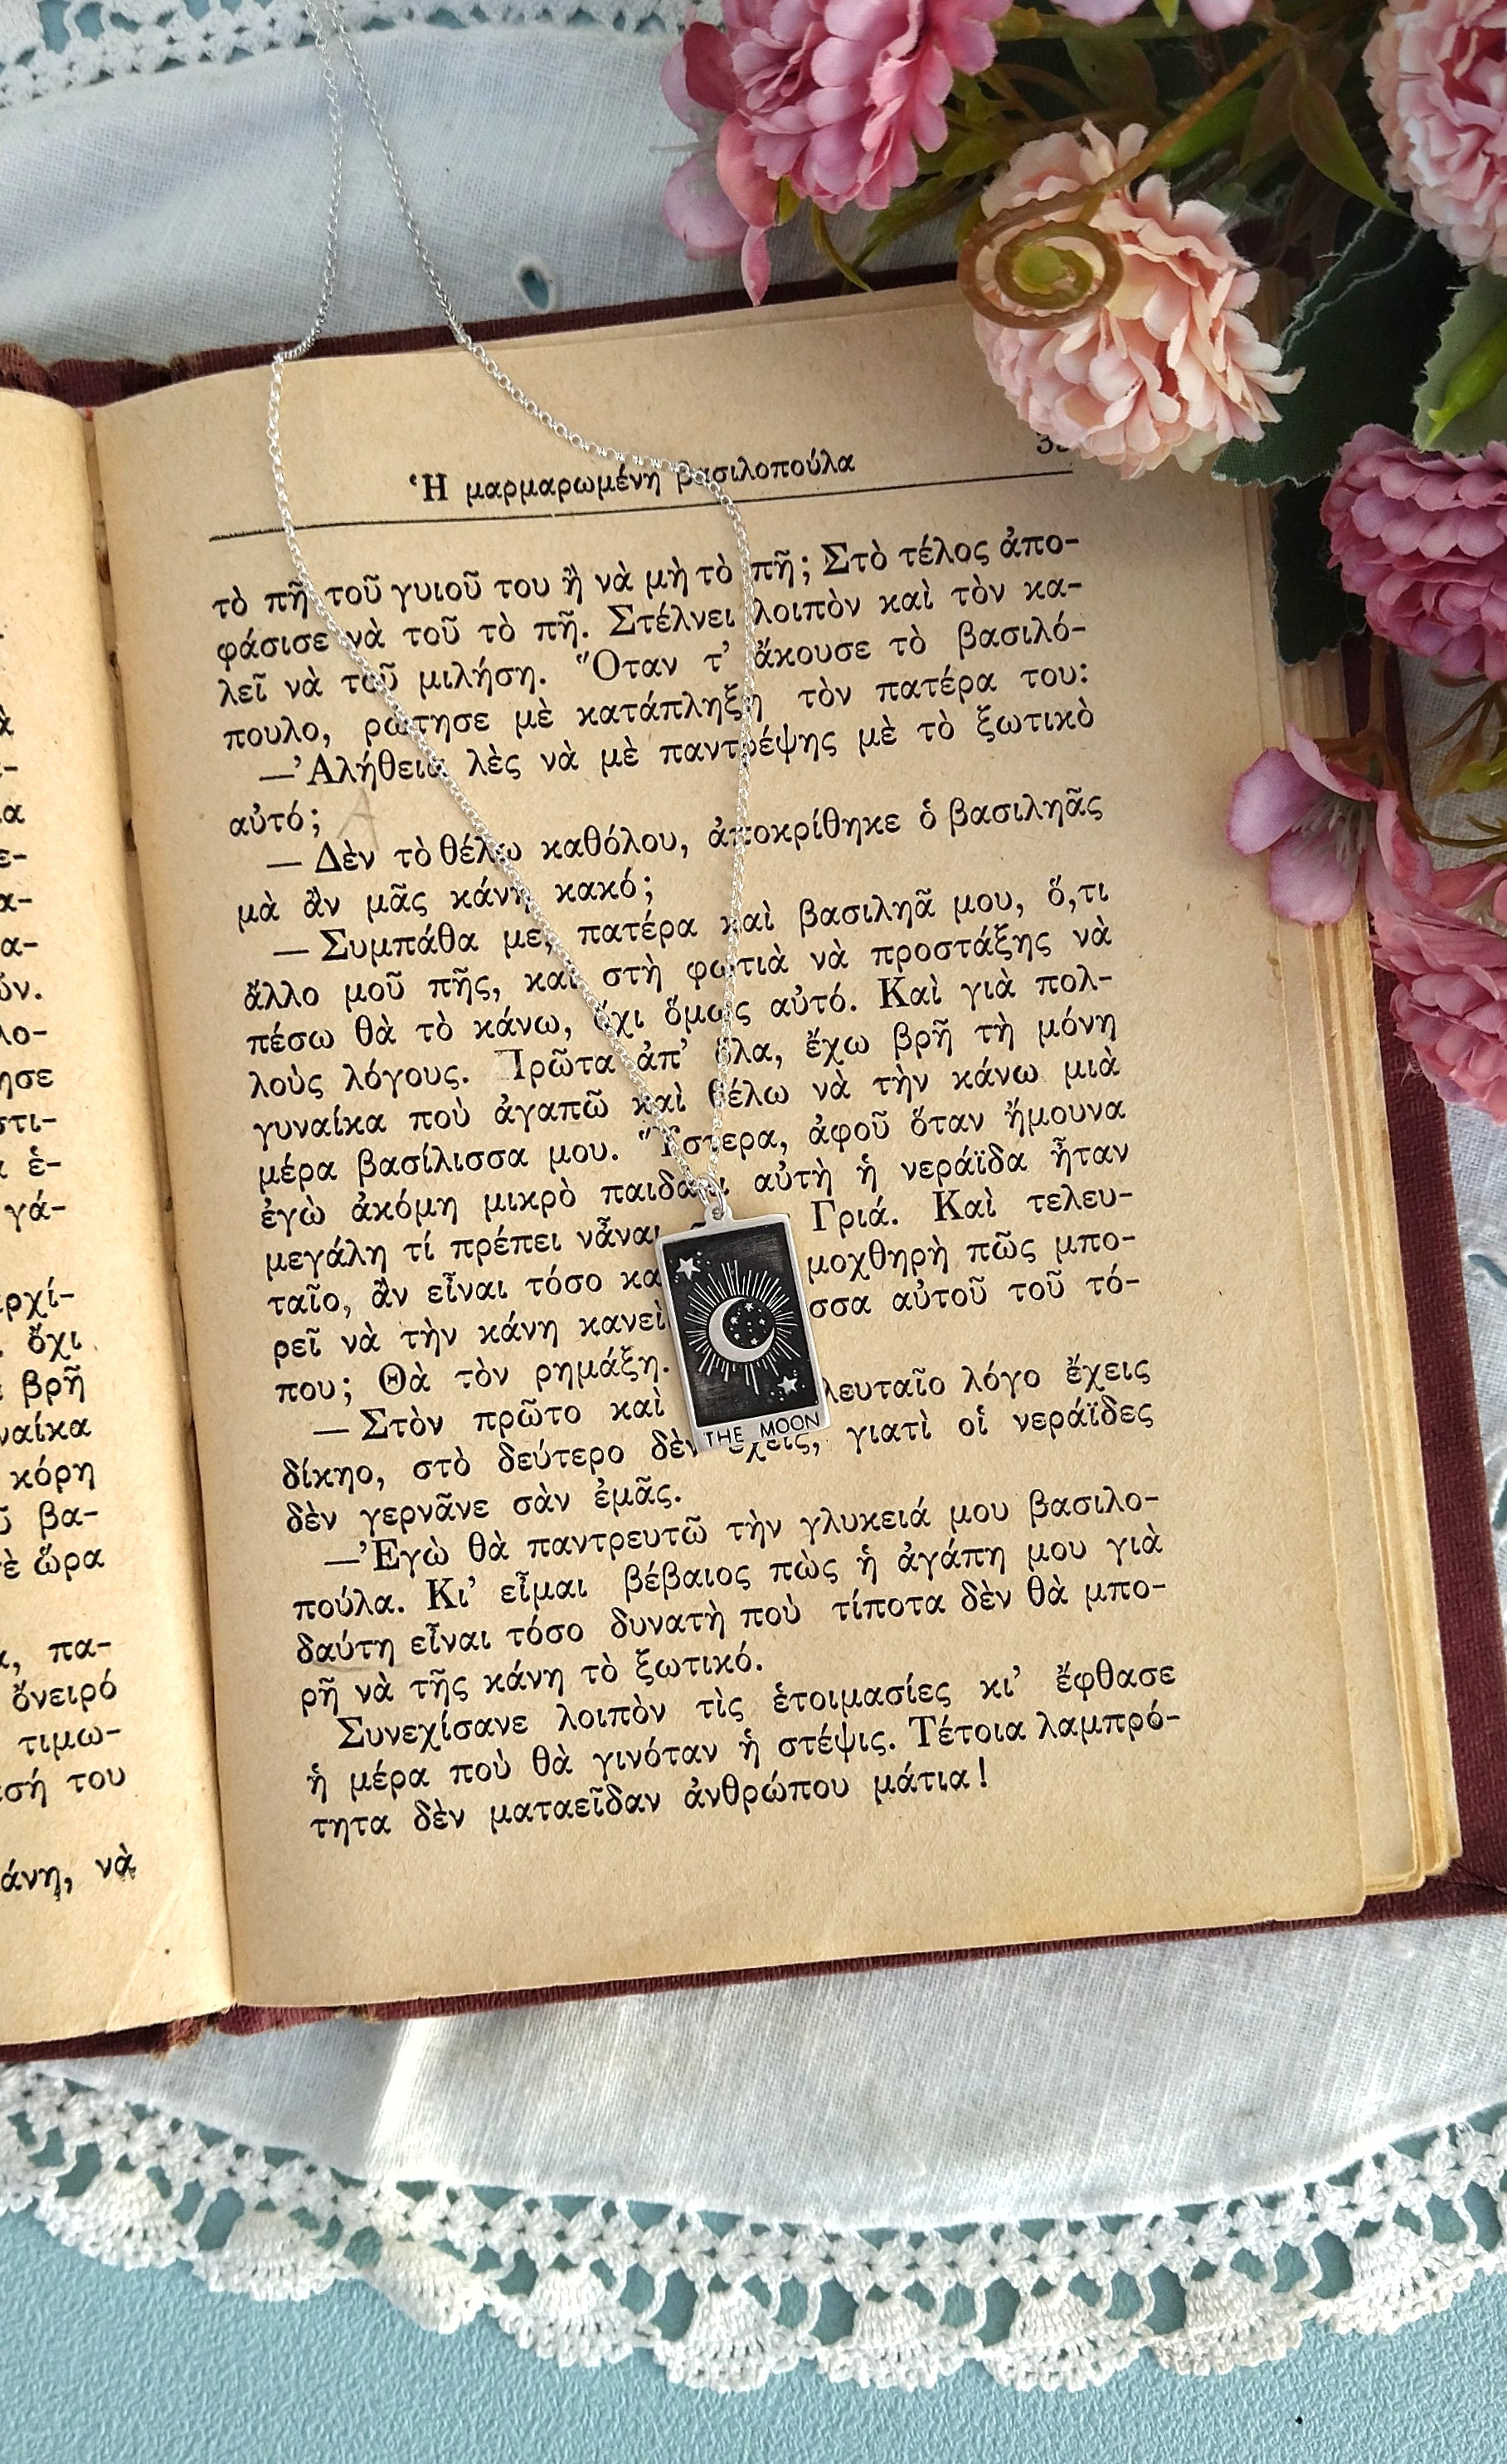 λ
-
α
ε-
α-
α-
ύν.
λο-
ησε
στι-
ἑ-
γά-
ρχί-
ὄχι
βρῆ
ναίκα
κόρη
βα-
ὲ ὥρα
πα-
ὄνειρό
τιμω-
σή του
άνη, νὰ
Ἡ μαρμαρωμένη βασιλοπούλα
τὸ πῆ τοῦ γυιοῦ του ἢ νὰ μὴ τὸ πῆ; Στὸ τέλος ἀπο-
φάσισε νὰ τοῦ τὸ πῆ. Στέλνει λοιπὸν καὶ τὸν κα-
λεῖ νὰ τοῦ μιλήση. Ὅταν τ’ ἄκουσε τὸ βασιλό-
πουλο, ρώτησε μὲ κατάπληξη τὸν πατέρα του:
—Ἀλήθεια λὲς νὰ μὲ παντρέψης μὲ τὸ ξωτικὸ
αὐτό;
— Δὲν τὸ θέλω καθόλου, ἀποκρίθηκε ὁ βασιληᾶς
μὰ ἂν μᾶς κάνη κακό;
— Συμπάθα με, πατέρα καὶ βασιληᾶ μου, ὅ,τι
ἄλλο μοῦ πῆς, καὶ στὴ φωτιὰ νὰ προστάξης νὰ
πέσω θὰ τὸ κάνω, ὄχι ὅμως αὐτό. Καὶ γιὰ πολ-
λοὺς λόγους. Πρῶτα ἀπ’ ὅλα, ἔχω βρῆ τὴ μόνη
γυναίκα ποὺ ἀγαπῶ καὶ θέλω νὰ τὴν κάνω μιὰ
μέρα βασίλισσα μου. Ὕστερα, ἀφοῦ ὅταν ἤμουνα
ἐγὼ ἀκόμη μικρὸ παιδάκι αὐτὴ ἡ νεράϊδα ἦταν
μεγάλη τί πρέπει νἆναι Γριά. Καὶ τελευ-
ταῖο, ἂν εἶναι τόσο κα μοχθηρὴ πῶς μπο-
ρεῖ νὰ τὴν κάνη κανεὶ σσα αὐτοῦ τοῦ τό-
που; Θὰ τὸν ρημάξη.
— Στὸν πρῶτο καὶ λευταῖο λόγο ἔχεις
δίκηο, στὸ δεύτερο δὲν ἔχεις, γιατὶ οἱ νεράϊδες
δὲν γερνᾶνε σὰν ἐμᾶς.
—Ἐγὼ θὰ παντρευτῶ τὴν γλυκειά μου βασιλο-
πούλα. Κι’ εἶμαι βέβαιος πὼς ἡ ἀγάπη μου γιὰ
δαύτη εἶναι τόσο δυνατὴ ποὺ τίποτα δὲν θὰ μπο-
ρῆ νὰ τῆς κάνη τὸ ξωτικό.
Συνεχίσανε λοιπὸν τὶς ἑτοιμασίες κι’ ἔφθασε
ἡ μέρα ποὺ θὰ γινόταν ἡ στέψις. Τέτοια λαμπρό-
τητα δὲν ματαεῖδαν ἀνθρώπου μάτια!
THE MOON